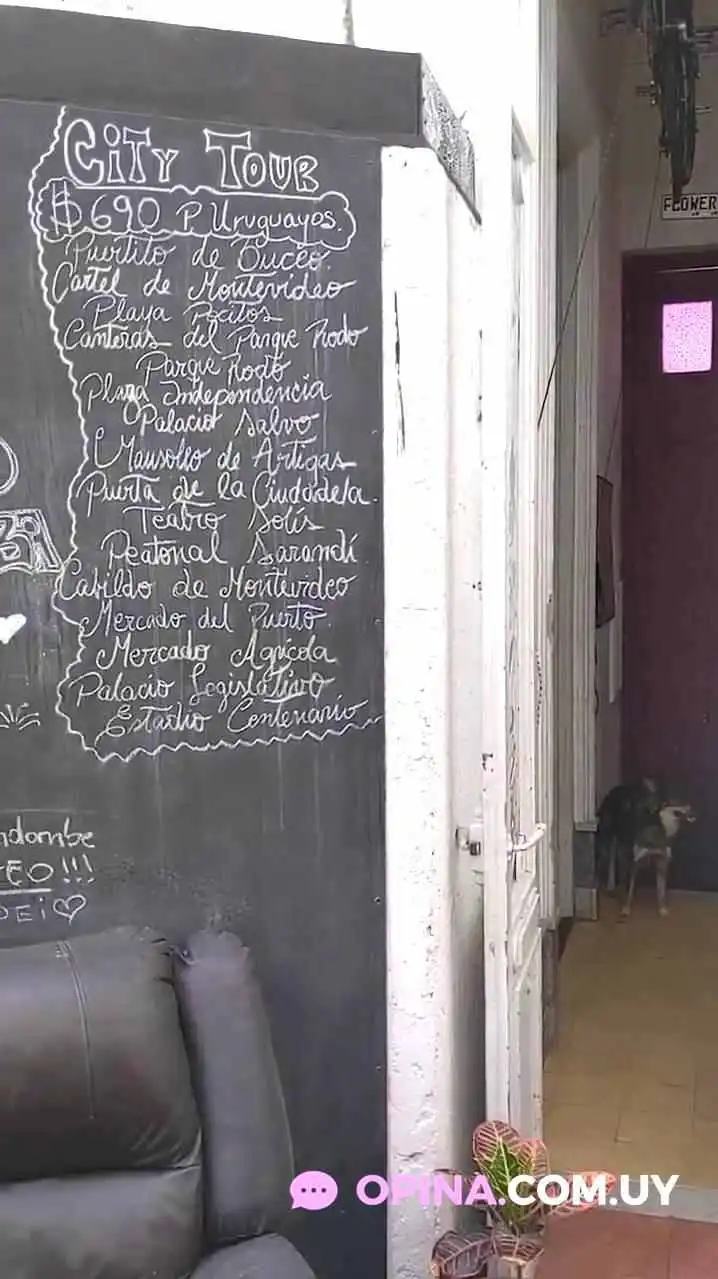 CiTy TOUR
$690 P. Uruguayos.
Puertito de Buceo.
Cartel de Montevideo
Playa Pocitos
Canteras del Parque Rodo
Parque Rodó
Plaza Independencia
Palacio Salvo
Mausoleo de Artigas
Puerta de la Ciudadela.
Teatro Solís
Peatonal Sarandí
Cabildo de Montevideo
Mercado del Puerto.
Mercado Agrícola
Palacio Legislativo
Estadio Centenario
ndombe
EO!!!
DEi
FLOWER
OPINA.COM.UY